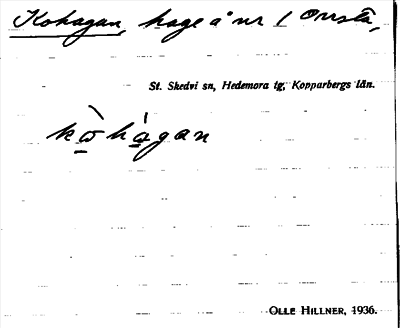 Kohagan, hage å nr 1 Onstå,
St. Skedvi sn, Hedemora tg, Kopparbergs län.
kò̱hàgan
OLLE HILLNER, 1936.